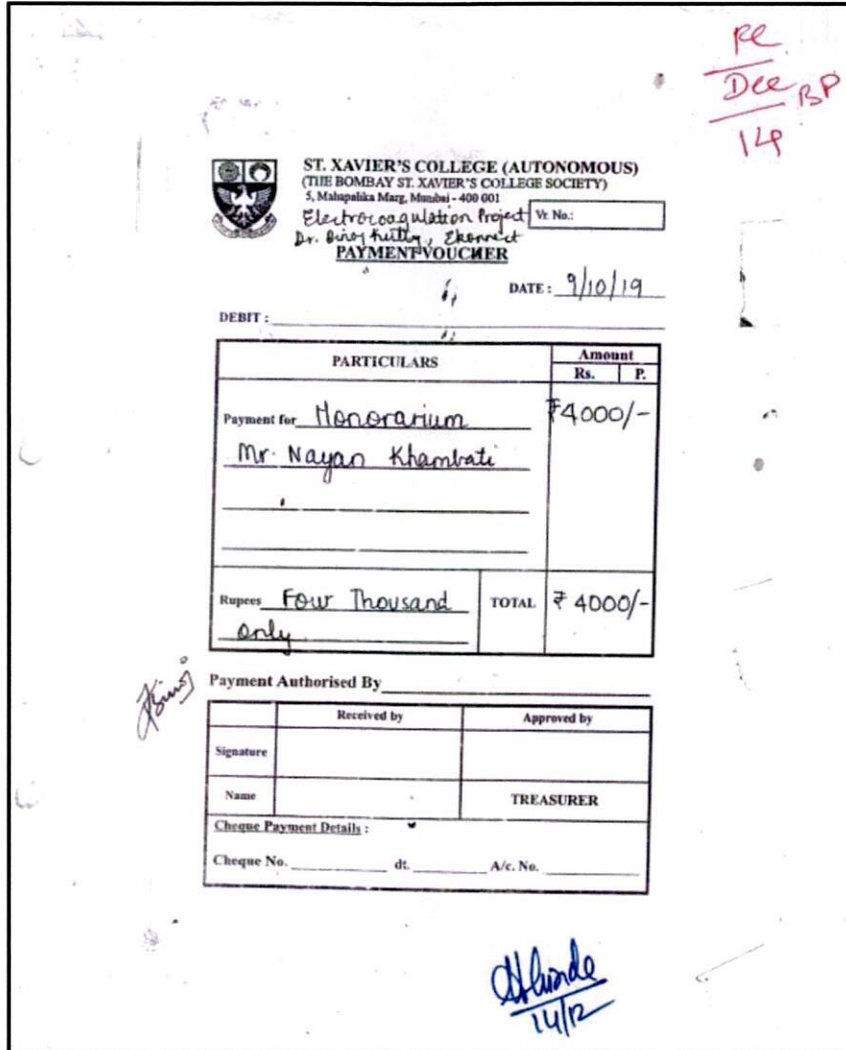 Dec
BP
14
ST. XAVIER'S COLLEGE (AUTONOMOUS)
(THE BOMBAY ST. XAVIER'S COLLEGE SOCIETY)
5, Mahapalika Marg, Mumbai - 400 001
Electrocoagulation Project
Vr. No.:
Dr. Binoj Kutty, Ekonnect
PAYMENT VOUCHER
DATE : 9/10/19
DEBIT :
PARTICULARS Amount
Rs. P.
Payment for Honorarium ₹4000/-
Mr. Nayan Khambati
Rupees Four Thousand TOTAL ₹ 4000/-
only
Payment Authorised By
Received by Approved by
Signature
Name TREASURER
Cheque Payment Details :
Cheque No. dt. A/c. No.
14/12